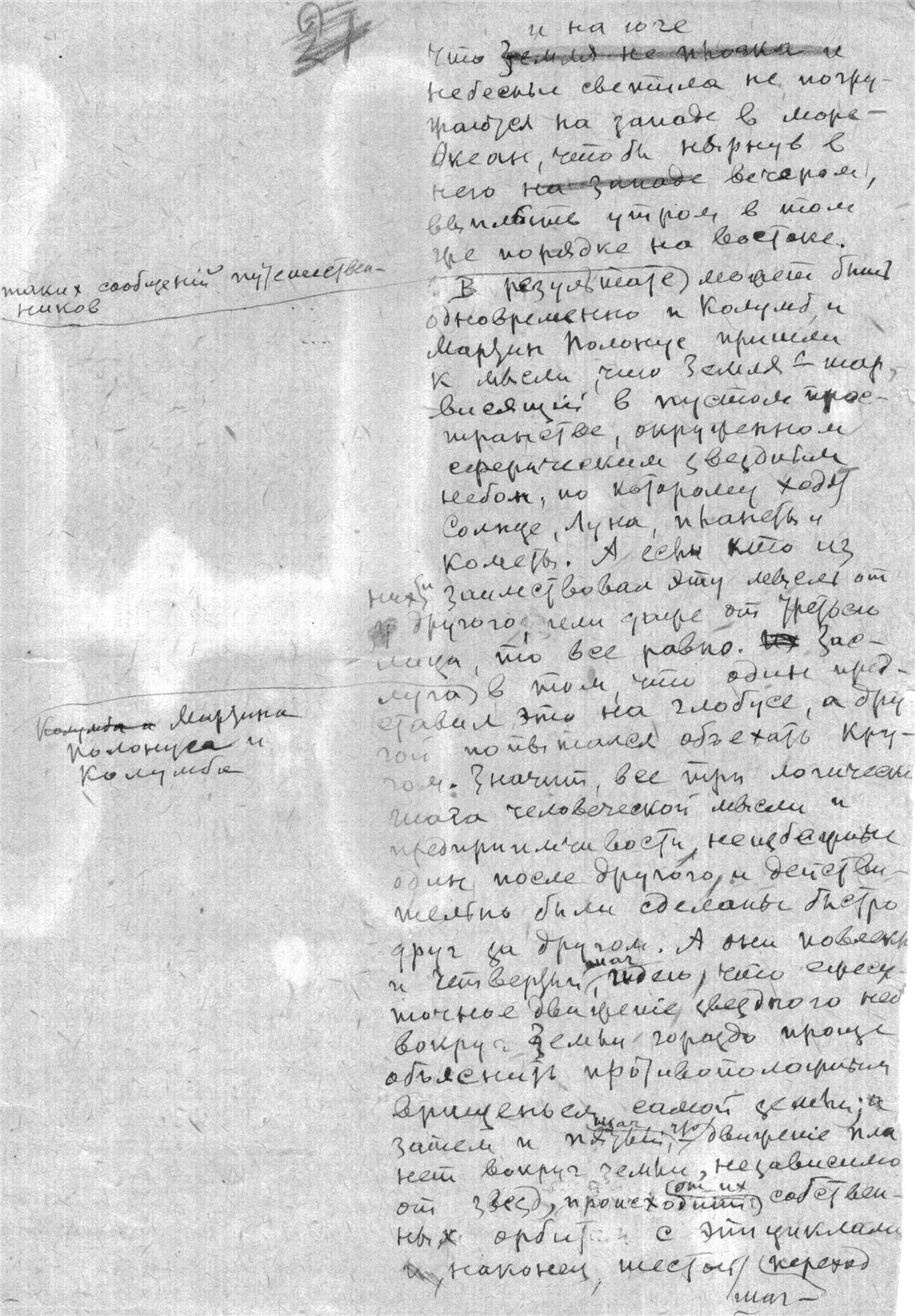 27
и на юге
что ~~Земля не прозка и~~
небесные светила не погру-
жаются на западе в море-
Океан, чтобы нырнув в
него ~~на западе~~ вечером,
выплыть утром в том
же порядке на востоке.
таких сообщений путешествен-
ников
В результате может быть
одновременно и Колумб и
Марцин Полонус пришли
к мысли, что Земля - шар,
висящий в пустом прос-
транстве, окруженном
сферическим звездным
небом, по которому ходят
Солнце, Луна, планеты и
кометы. А если кто из
них бы заимствовал эту мысль от
другого или даже от третьего
лица, то все равно. Зас-
луга в том, что один пред-
~~Колумба и~~ Марцина
Полонуса и
Колумба
ставил это на глобусе, а дру-
гой попытался объехать кру-
гом. Значит, все три логически
шага человеческой мысли и
предприимчивости, неизбежные
один после другого, и действи-
тельно были сделаны быстро
друг за другом. А они повлекли
шаг
и четвертый, идею, что ежесу-
точное движение звездного неба
вокруг Земли гораздо проще
объяснить противоположным
вращеньем самой земли, а
шаг, что
затем и пятый, - движение пла
нет вокруг земли, независимо
от их
от звезд, происходит собствен-
ных орбит с эпициклами
и, наконец, шестой (переход
шаг -